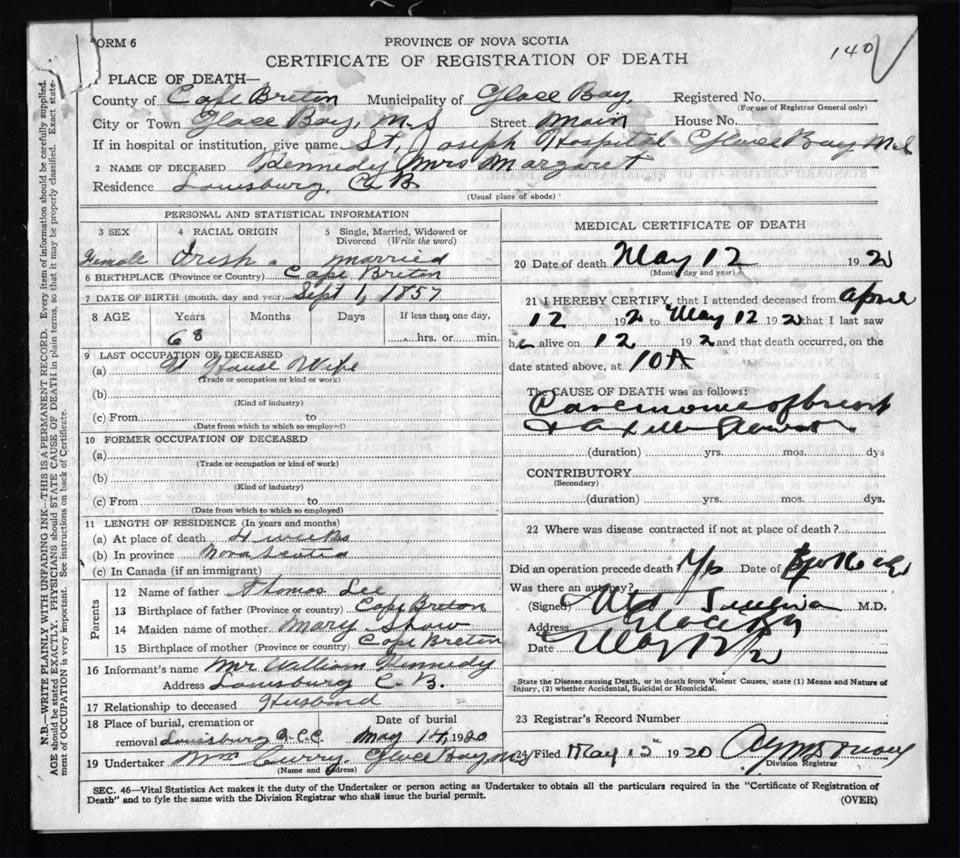 FORM 6
PROVINCE OF NOVA SCOTIA
140
CERTIFICATE OF REGISTRATION OF DEATH
1 PLACE OF DEATH—
County of Cape Breton Municipality of Glace Bay, Registered No.
(For use of Registrar General only)
City or Town Glace Bay, N.S Street Main House No.
If in hospital or institution, give name St. Joseph Hospital Glace Bay N.S
2 NAME OF DECEASED Kennedy Mrs Margaret
Residence Louisburg, C.B.
(Usual place of abode)
PERSONAL AND STATISTICAL INFORMATION
3 SEX 4 RACIAL ORIGIN 5 Single, Married, Widowed or Divorced (Write the word)
Female Irish. Married
6 BIRTHPLACE (Province or Country) Cape Breton
7 DATE OF BIRTH (month, day and year) Sept 1, 1857
8 AGE Years Months Days If less than one day,
68 hrs. or min.
9 LAST OCCUPATION OF DECEASED
(a) House Wife
(Trade or occupation or kind or work)
(b)
(Kind of industry)
(c) From to
(Date from which to which so employed)
10 FORMER OCCUPATION OF DECEASED
(a)
(Trade or occupation or kind of work)
(b)
(Kind of industry)
(c) From to
(Date from which to which so employed)
11 LENGTH OF RESIDENCE (In years and months)
(a) At place of death 4 weeks
(b) In province Nova Scotia
(c) In Canada (if an immigrant)
Parents
12 Name of father Thomas Lee
13 Birthplace of father (Province or country) Cape Breton
14 Maiden name of mother Mary Shaw
15 Birthplace of mother (Province or country) Cape Breton
16 Informant's name Mr William Kennedy
Address Louisburg C.B.
17 Relationship to deceased Husband
18 Place of burial, cremation or Date of burial
removal Louisburg May 14, 1920
19 Undertaker Curry, Glace Bay N.S
(Name and address)
MEDICAL CERTIFICATE OF DEATH
20 Date of death May 12 192
(Month day and year)
21 I HEREBY CERTIFY, that I attended deceased from April
12 192 to May 12 192 that I last saw
her alive on 12 192 and that death occurred, on the
date stated above, at 10 A
The CAUSE OF DEATH was as follows:
of breast
(duration) yrs. mos. dys
CONTRIBUTORY
(Secondary)
(duration) yrs. mos. dys.
22 Where was disease contracted if not at place of death?
Did an operation precede death Date of
Was there an autopsy?
(Signed) M.D.
Address Glace Bay
Date May 12/2
State the Disease causing Death, or in death from Violent Causes, state (1) Means and Nature of
Injury, (2) whether Accidental, Suicidal or Homicidal.
23 Registrar's Record Number
24 Filed May 12 1920
Division Registrar
SEC. 46—Vital Statistics Act makes it the duty of the Undertaker or person acting as Undertaker to obtain all the particulars required in the "Certificate of Registration of
Death" and to fyle the same with the Division Registrar who shall issue the burial permit.
(OVER)
N.B.—WRITE PLAINLY WITH UNFADING INK—THIS IS A PERMANENT RECORD. Every item of information should be carefully supplied.
AGE should be stated EXACTLY. PHYSICIANS should STATE CAUSE OF DEATH in plain terms, so that it may be properly classified. Exact state-
ment of OCCUPATION is very important. See instructions on back of Certificate.